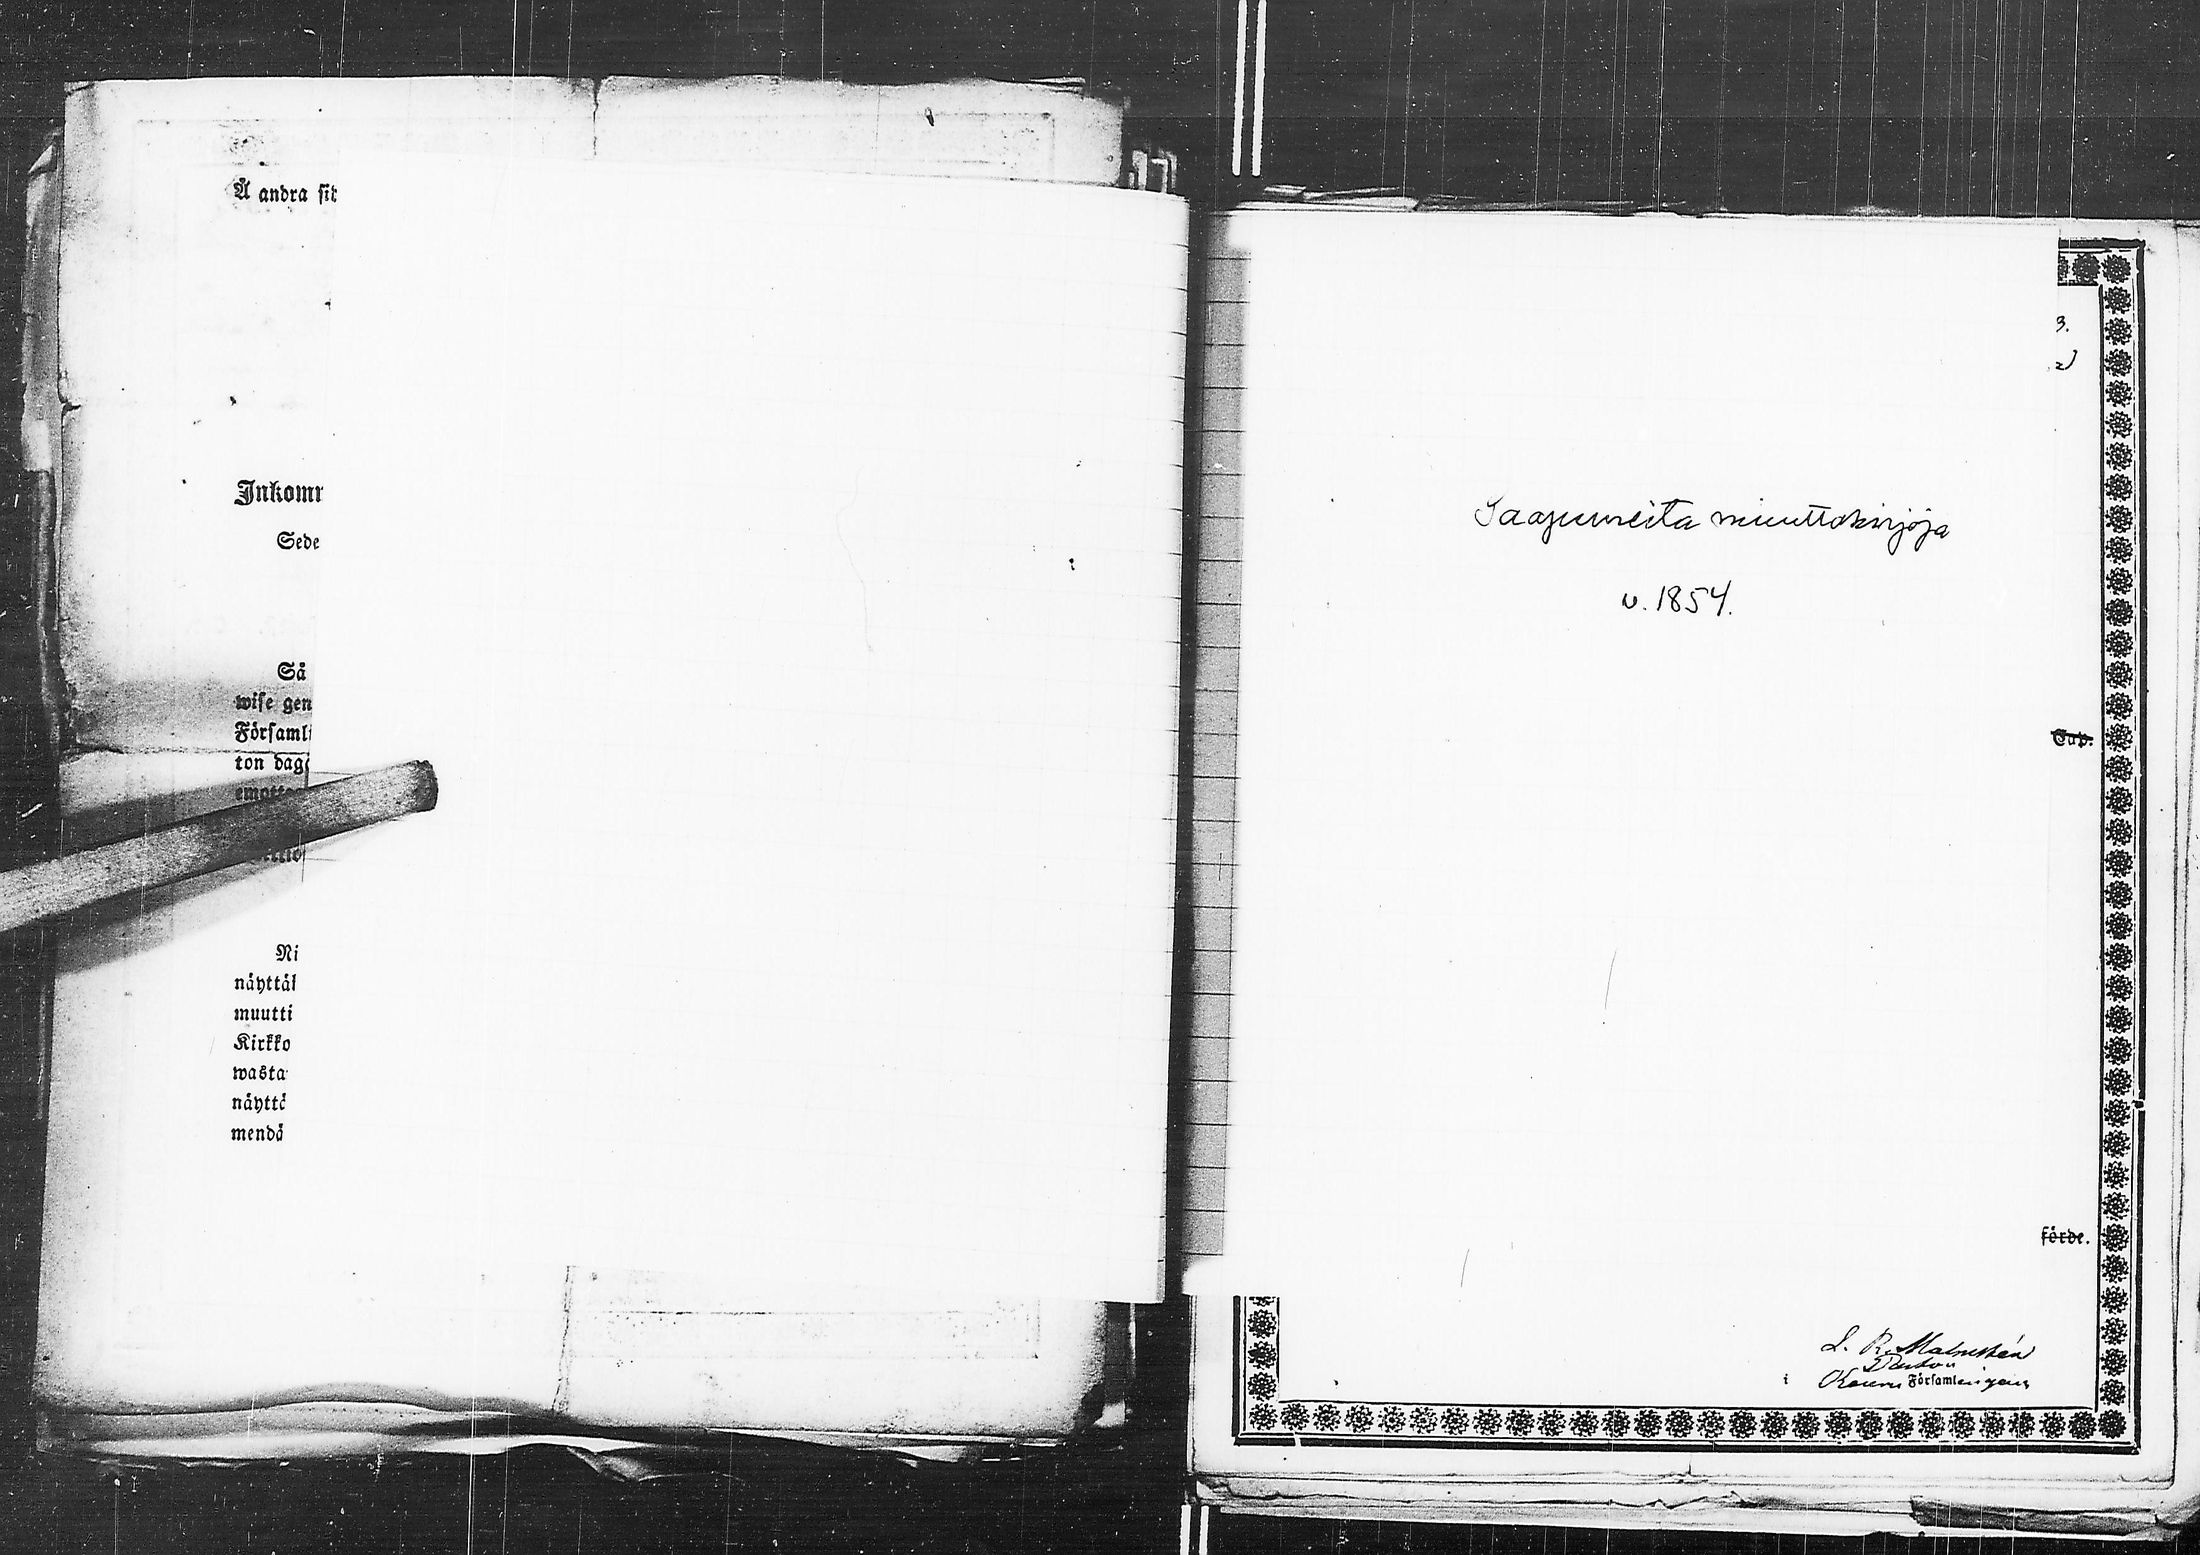 Å andra sid
Inkomm
Sede
Så
wise gen
Församli
ton dag
emottag
Ni
näyttäk
muutti
Kirkko
wasta
näyttä
mendä
3.
Saapuneita muuttokirjoja
v. 1854.
Cap.
förde.
L. R. Malmstén
Pastor
i Församlingen